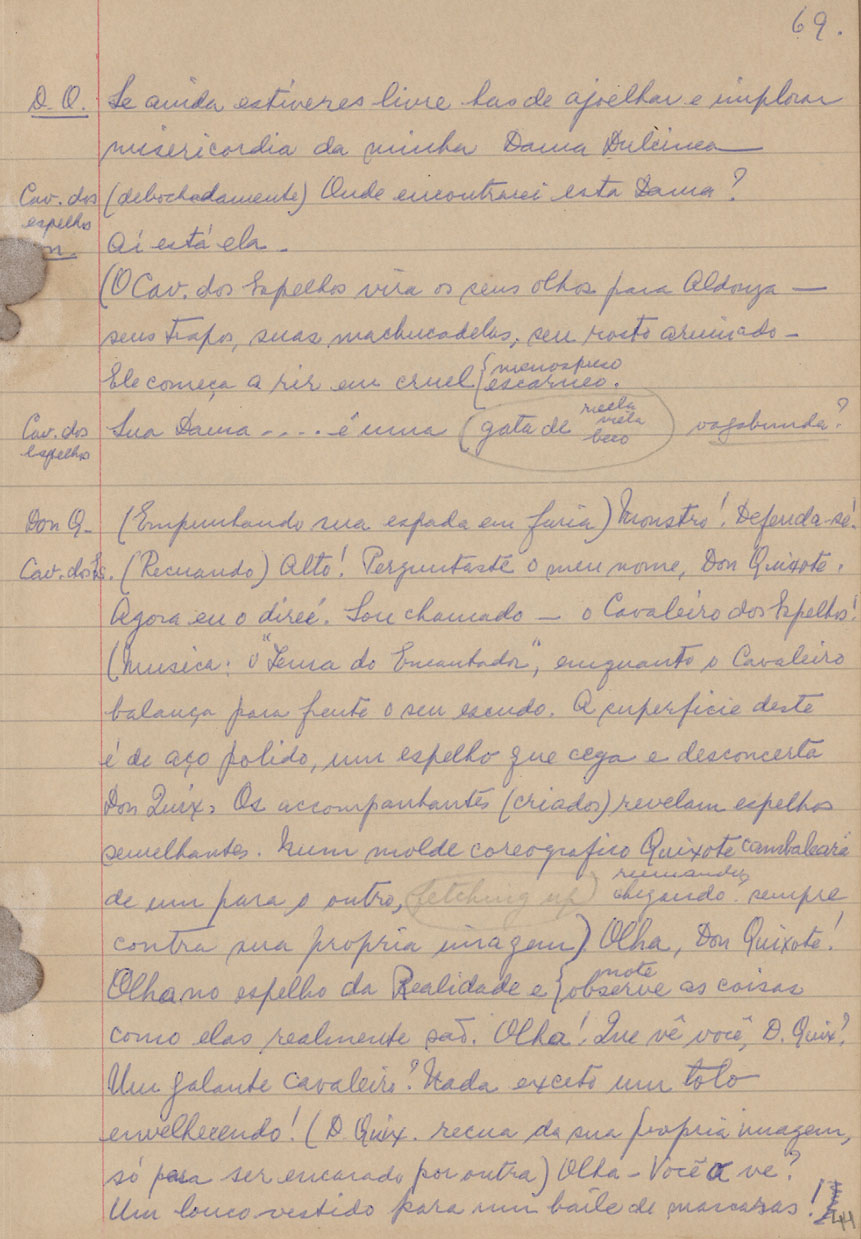 69.
D. Q. Se ainda estiveres livre has de ajoelhar e implorar
misericordia da minha Dama Dulcinea
Cav. dos espelhos (debochadamente) Onde encontrarei esta Dama?
Aí está ela.
(O Cav. dos Espelhos vira os seus olhos para Aldonza —
seus trapos, suas machucadelas, seu rosto arruinado —
Ele começa a rir em cruel { menospreso
escarneo.
Cav. dos Espelhos Sua Dama .... é uma (gata de viela beco) vagabunda?
Don Q. (Empunhando sua espada em furia) Monstro! Defenda-se!
Cav. dos Es. (Recuando) Alto! Perguntaste o meu nome, Don Quixote.
Agora eu o direi. Sou chamado — o Cavaleiro dos Espelhos!
(Musica: O "Tema do Encantador", emquanto o Cavaleiro
balança para frente o seu escudo. A superficie deste
é de aço polido, um espelho que cega e desconcerta
Don Quix. Os accompanhantes (criados) revelam espelhos
semelhantes. Num molde coreografico Quixote cambaleará
de um para o outro, (fetching up) chegando sempre
contra sua propria imagem) Olha, Don Quixote!
Olha no espelho da Realidade e { note
observe as coisas
como elas realmente são. Olha! Que vê você, D. Quix?
Um galante cavaleiro? Nada exceto um tolo
envelhecendo! (D. Quix. recua da sua propria imagem,
só para ser encarado por outra) Olha - Você a ve?
Um louco vestido para um baile de mascaras!
44